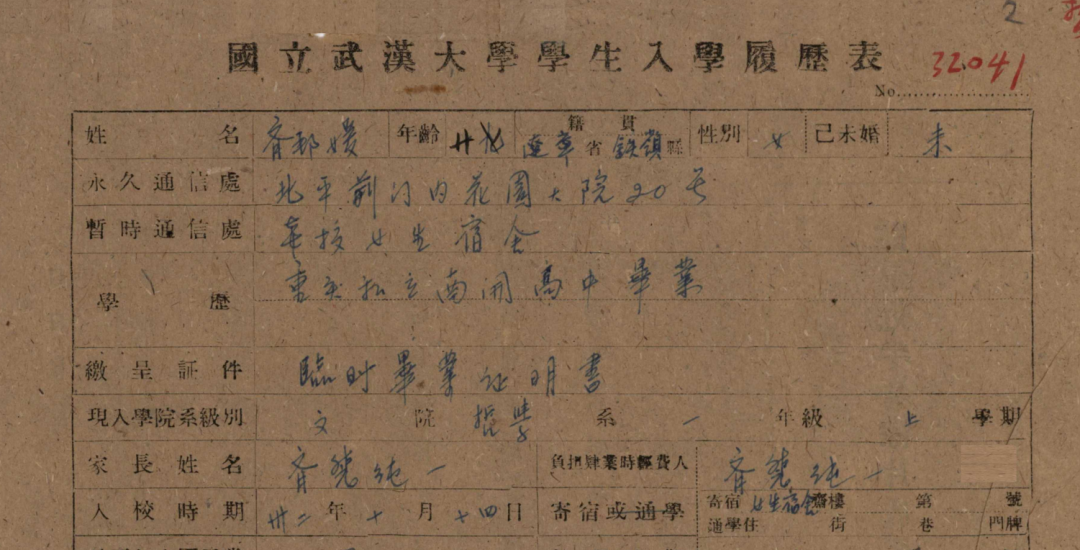 2
國立武漢大學學生入學履歷表
No. 32041
姓名 齊邦媛 年齡 廿 籍貫 遼寧省 鉄嶺縣 性別 女 己未婚 未
永久通信處 北平 門內花園大院20号
暫時通信處 本校女生宿舍
學歷 重慶私立南開高中畢業
繳呈証件 臨时畢業证明書
現入學院系級別 文院 哲學系 一年級 上學期
家長姓名 齊 純一 負担肄業時經費人 齊 純一
入校時期 卅二年十月十四日 寄宿或通學 寄宿 女生宿舍 齋樓 第 號
通學住 街 巷 門牌